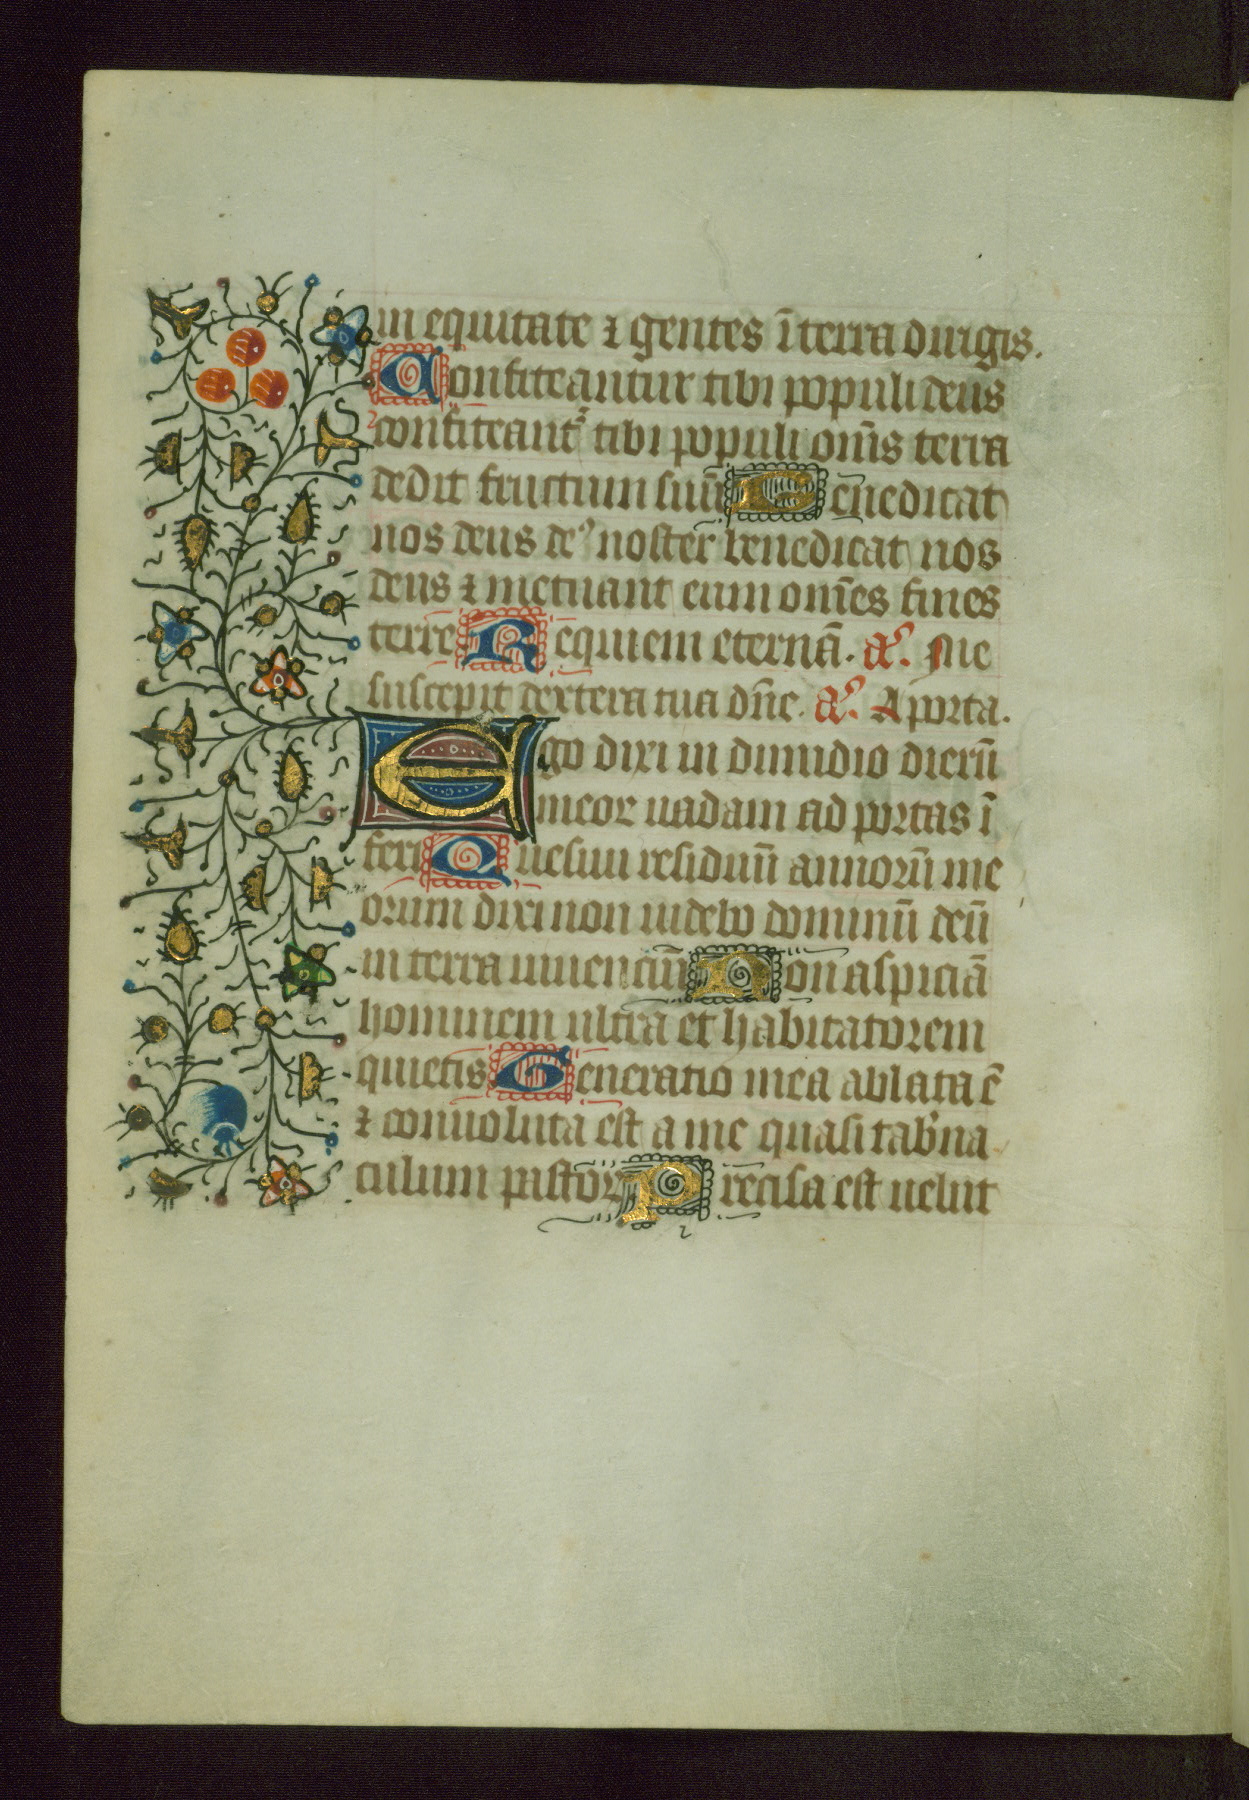 in equitate ⁊ gentes ī terra dirigis.
Confiteantur tibi populi deus
confiteant᷑ tibi populi om̄s terra
dedit fructum suū Benedicat
nos deus deꝰ noster benedicat nos
deus ⁊ metuant eum om̄es fines
terre Requiem eternā. a͞. Me
suscepit dextera tua dn̄e. a͞. A porta.
Ego dixi in dimidio dierū
meor uadam ad portas ī
feri Quesiui residuū annorū me
orum dixi non uidebo dominū deū
in terra uiuenciū Non aspiciā
hominem ultra et habitatorem
quietis Generatio mea ablata ē
⁊ conuoluta est a me quasi tab̄na
culum pastor Precisa est uelut